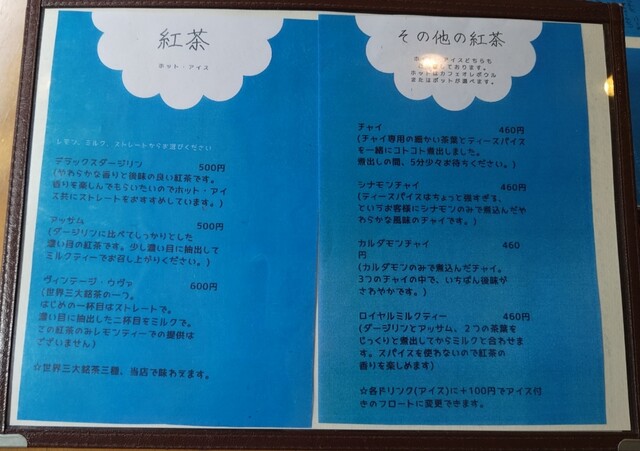 紅茶
ホット・アイス
レモン、ミルク、ストレートからお選びください
デラックスダージリン 500円
(やわらかな香りと後味の良い紅茶です。
香りを楽しんでもらいたいのでホット・アイ
ス共にストレートをおすすめしています。)
アッサム 500円
(ダージリンに比べてしっかりとした
濃い目の紅茶です。少し濃い目に抽出して
ミルクティーでお召し上がりください。)
ヴィンテージ・ウヴァ 600円
(世界三大銘茶の一つ。
はじめの一杯目はストレートで。
濃い目に抽出した二杯目をミルクで。
この紅茶のみレモンティーでの提供は
ございません)
☆世界三大銘茶三種、当店で味わえます。
その他の紅茶
アイスどちらも
しております。
ホットはカフェオレボウル
またはポットが選べます。
チャイ 460円
(チャイ専用の細かい茶葉とティースパイス
を一緒にコトコト煮出しました。
煮出しの間、5分少々お待ちください。)
シナモンチャイ 460円
(ティースパイスはちょっと強すぎる、
というお客様にシナモンのみで煮込んだや
わらかな風味のチャイです。)
カルダモンチャイ 460
円
(カルダモンのみで煮込んだチャイ。
3つのチャイの中で、いちばん後味が
さわやかです。)
ロイヤルミルクティー 460円
(ダージリンとアッサム、2つの茶葉を
じっくりと煮出してからミルクと合わせま
す。スパイスを使わないので紅茶の
香りを楽しめます)
☆各ドリンク(アイス)に+100円でアイス付
きのフロートに変更できます。